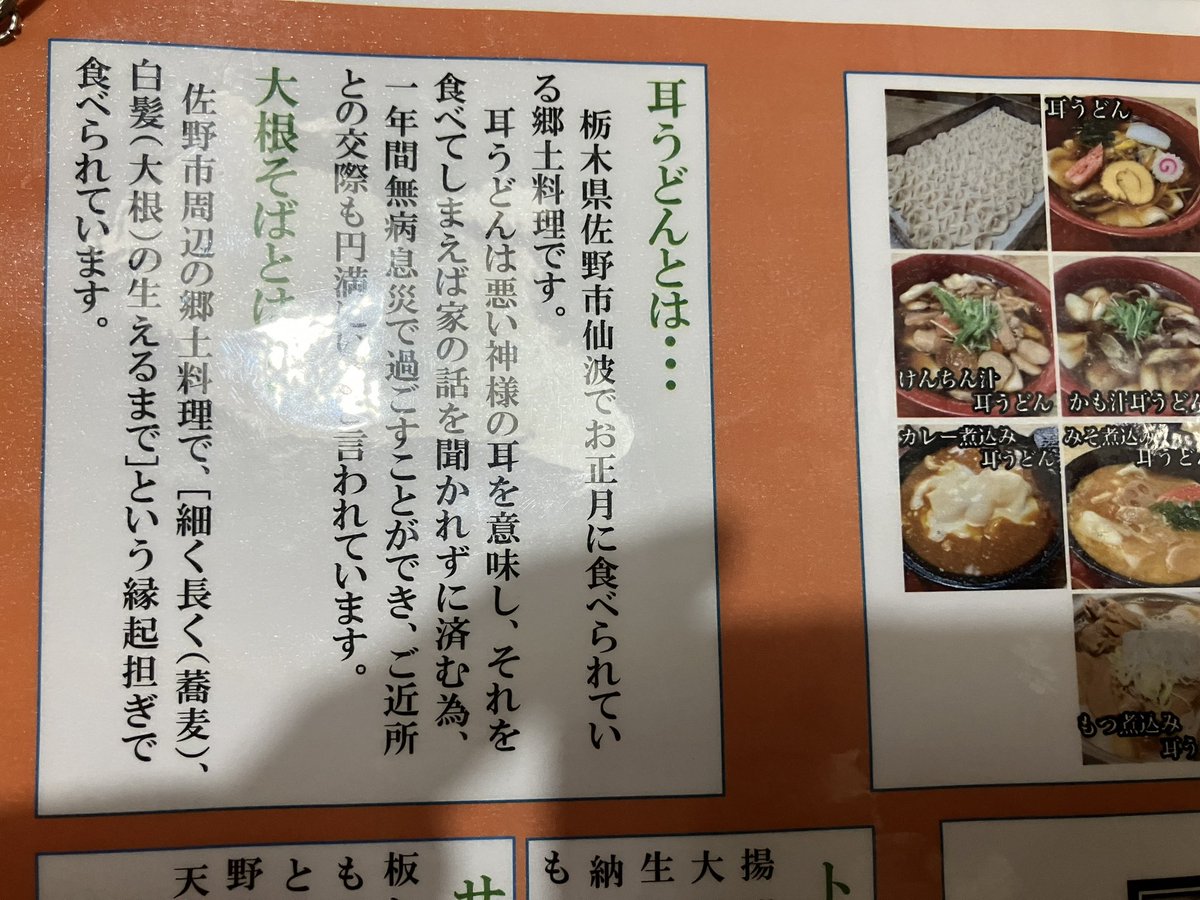 耳うどんとは…
栃木県佐野市仙波でお正月に食べられてい
る郷土料理です。
耳うどんは悪い神様の耳を意味し、それを
食べてしまえば家の話を聞かれずに済む為、
一年間無病息災で過ごすことができ、ご近所
との交際も円満に言われています。
大根そばとは
佐野市周辺の郷土料理で、[細く長く(蕎麦)、
白髪(大根)の生えるまで]という縁起担ぎで
食べられています。
耳うどん
けんちん汁
耳うどん
かも汁耳うどん
カレー煮込み
耳うどん
みそ煮込み
耳うどん
もつ煮込み
耳う
ト
揚
大
生
納
も
サ
板
も
と
野
天